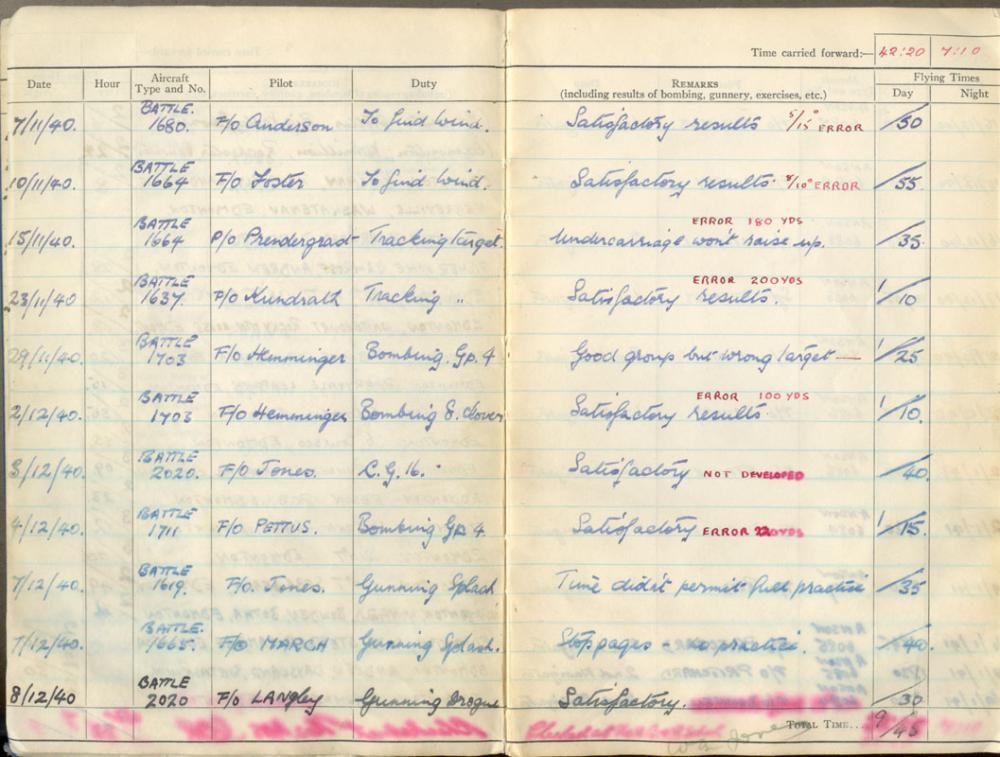 Time carried forward:— 42:20 7:10
Date Hour Aircraft Type and No. Pilot Duty REMARKS (including results of bombing, gunnery, exercises, etc.) Flying Times Day Night
7/11/40. BATTLE. 1680. F/O Anderson To find wind. Satisfactory results 5/15° ERROR /50
10/11/40. BATTLE 1664 F/O Foster To find wind. Satisfactory results. 5/10° ERROR /55
ERROR 180 YDS
15/11/40. BATTLE 1664 P/O Prendergrad- Tracking Target. Undercarriage won't raise up. /35
ERROR 200 YDS
23/11/40 BATTLE 1637. P/O Kundrath Tracking " Satisfactory results. 1/10
29/11/40. BATTLE 1703 F/O Hemminger Bombing. Gp. 4 Good group but wrong target — 1/25
ERROR 100 YDS
2/12/40. BATTLE 1703 F/O Hemminger Bombing Satisfactory results. 1/10.
3/12/40. BATTLE 2020. F/O Jones. C.G. 16. Satisfactory NOT DEVELOPED /40.
4/12/40. BATTLE 1711 F/O PETTUS. Bombing Gp 4 Satisfactory ERROR 220 YDS 1/15.
7/12/40. BATTLE 1619. F/O. Jones. Gunning Splash Time didn't permit full practise /35
7/12/40. BATTLE. 1665. F/O MARCH Gunning Splash. Stoppages - no practice. /40.
8/12/40 BATTLE 2020 F/o LANGLEY Gunning Drogue Satisfactory. /30
TOTAL TIME... 9/45